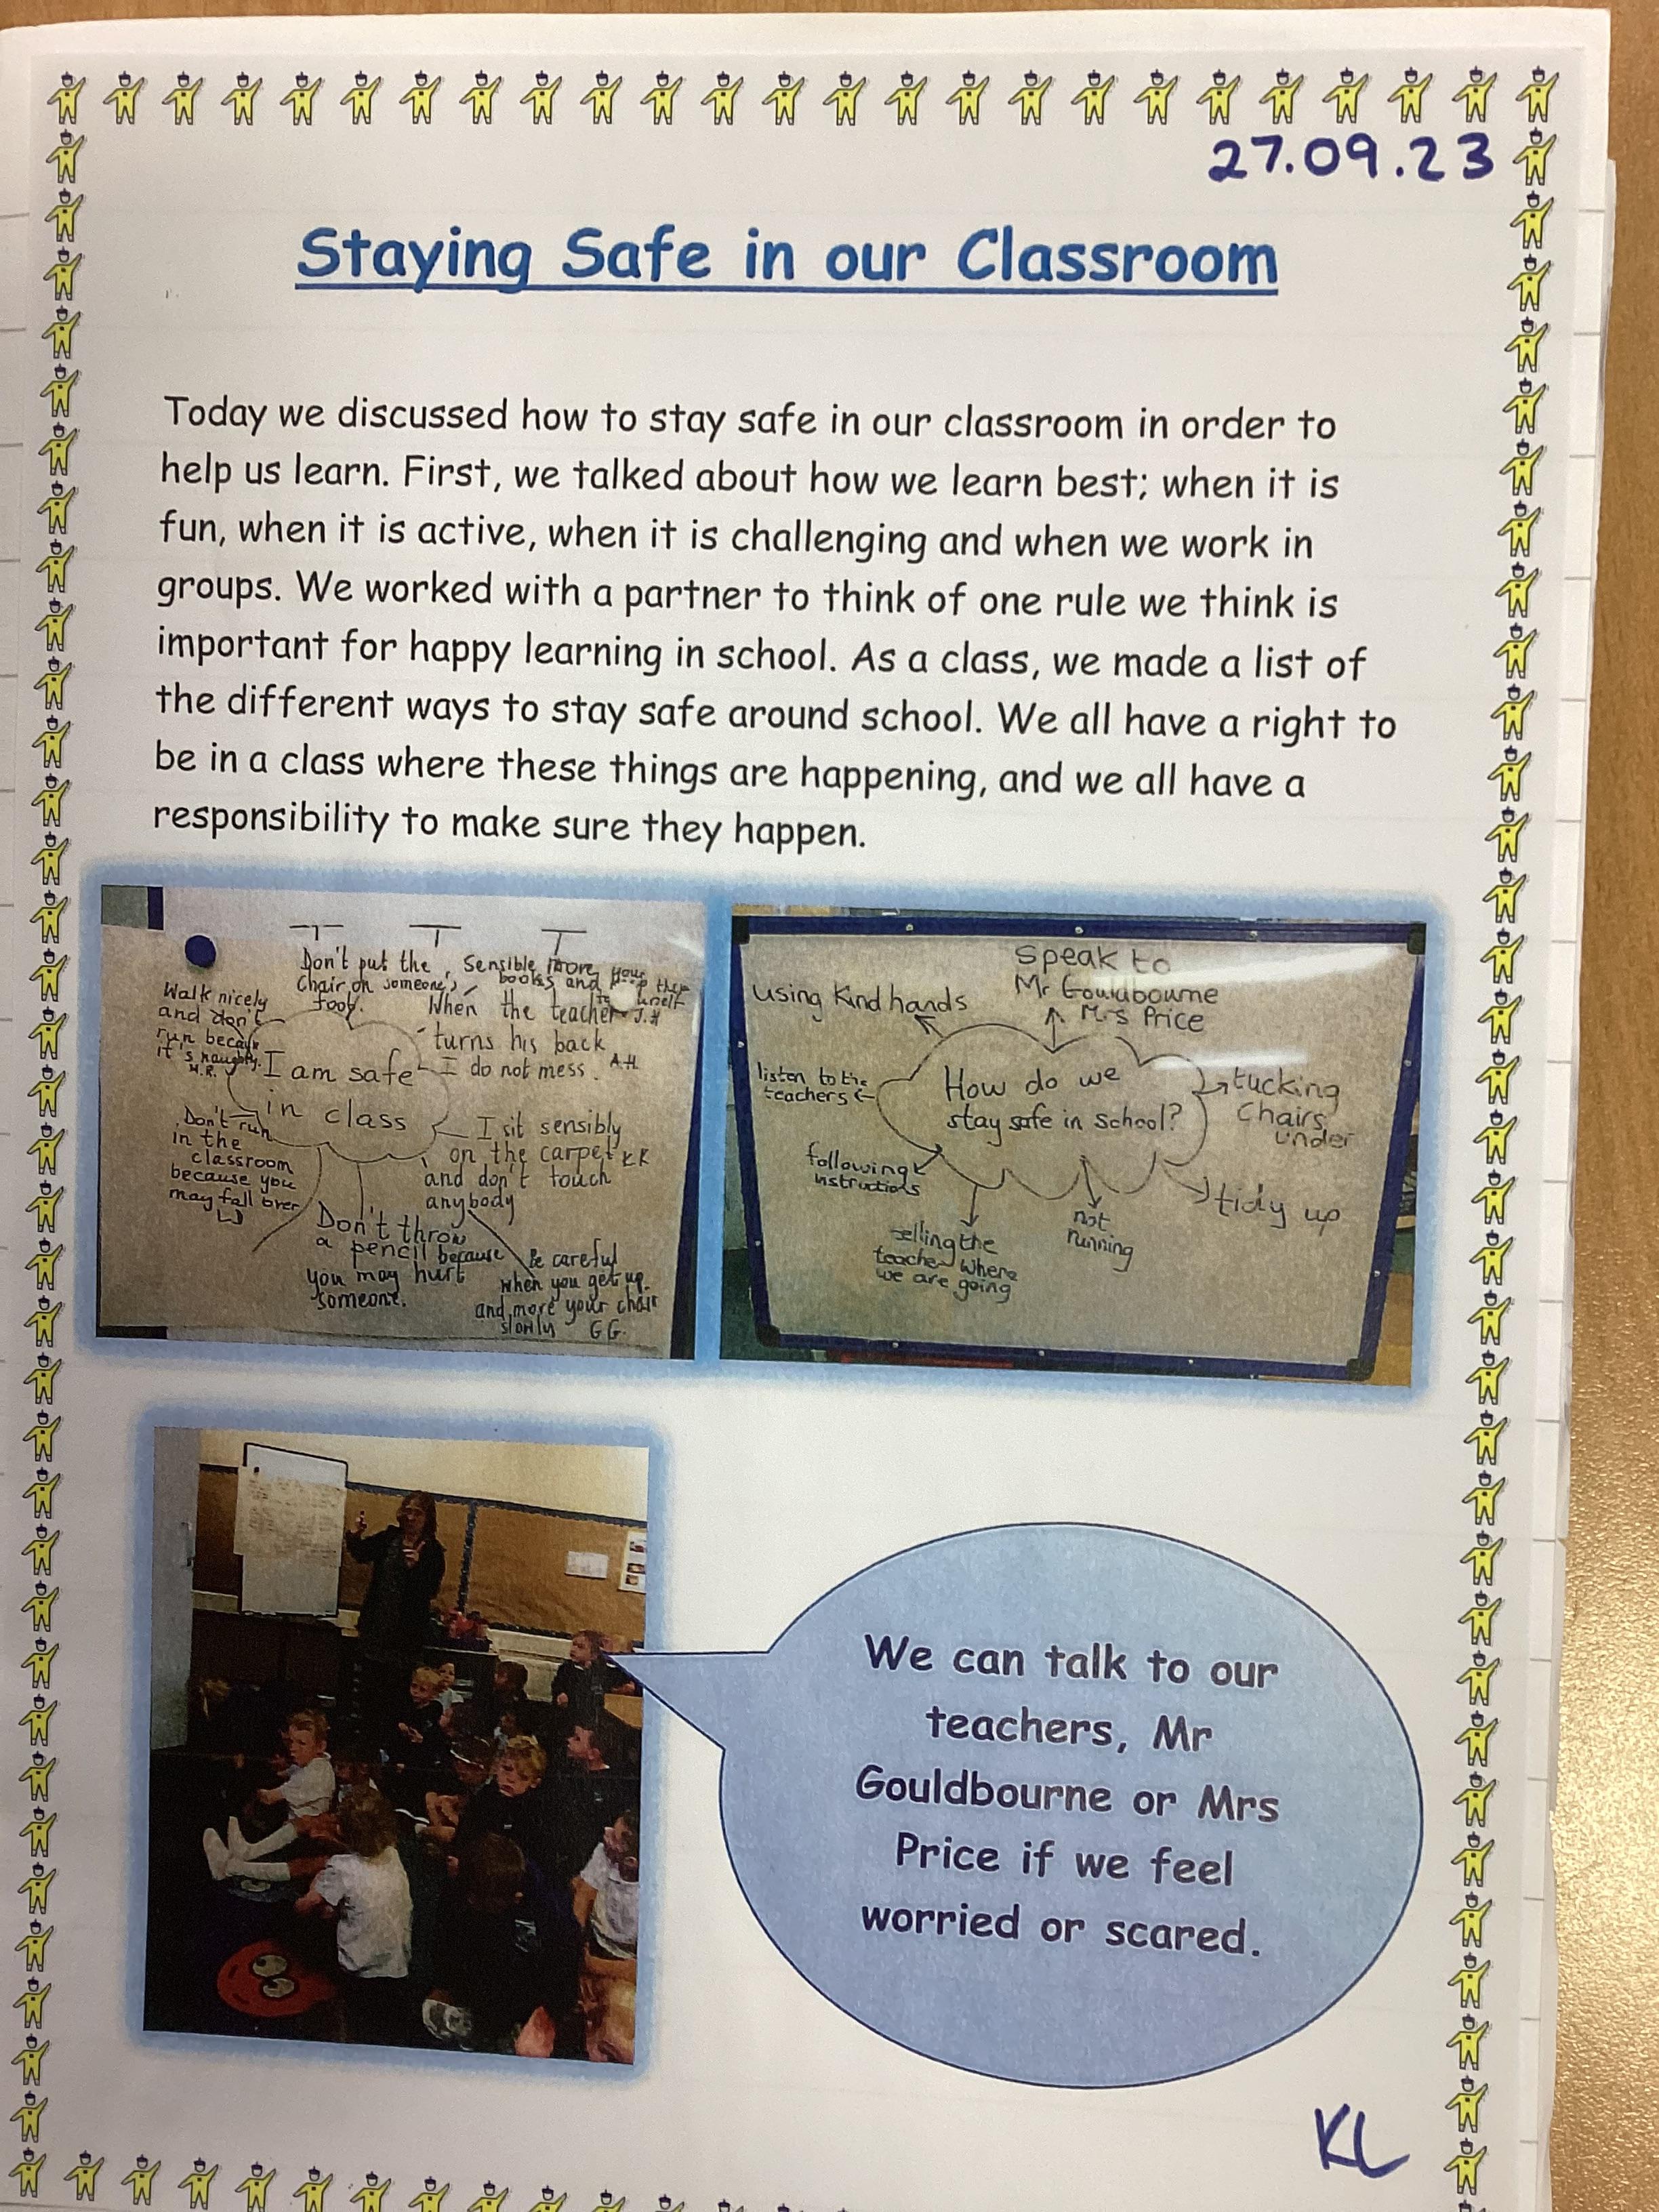 27.09.23
Staying Safe in our Classroom
Today we discussed how to stay safe in our classroom in order to
help us learn. First, we talked about how we learn best; when it is
fun, when it is active, when it is challenging and when we work in
groups. We worked with a partner to think of one rule we think is
important for happy learning in school. As a class, we made a list of
the different ways to stay safe around school. We all have a right to
be in a class where these things are happening, and we all have a
responsibility to make sure they happen.
Don't put the
chair on someone's
foot.
Sensible
books and
J.H
Walk nicely
and don't
run because
it's naughty.
M.R.
When the teacher
turns his back
I do not mess. A.H
I am safe
in class
Don't run
in the
classroom
because you
may fall over
LJ
I sit sensibly
on the carpet KR
and don't touch
anybody
Don't throw
a pencil because
you may hurt
someone.
Be careful
when you get up
and move your chair
slowly GG.
Speak to
Mr Gouldbourne
Mrs Price
using kind hands
listen to the
teachers
How do we
stay safe in school?
tucking
chairs
under
following
instructions
telling the
teacher where
we are going
not
running
tidy up
We can talk to our
teachers, Mr
Gouldbourne or Mrs
Price if we feel
worried or scared.
KL